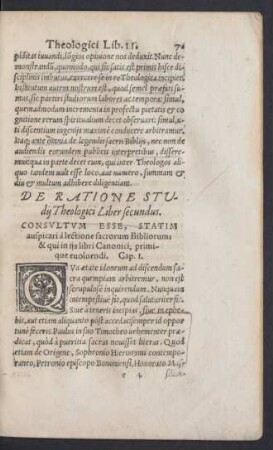 Theologici Lib. II.
piditat iuuandi, lōgius optione nos deduxit. Nunc de-
monstrandū, quomodo, qui sic satis est primis hisce di-
sciplinis imbutus, exercere se in re Theologica incipiet.
Institutum autem nostrum est, quod semel præfati su-
mus, sic partiri studiorum labores ac tempora: simul,
quemadmodum incrementa in profectu pietatis et co-
gnitione rerum spiritualium decet obseruari: simul,
discentium ingenijs maximè conducere arbitramur.
Itaq; ante omnia de legendis sacris Biblijs, nec non de
audiendis eorundem publicis interpretibus, dissere-
musque in parte decet eum, qui inter Theologos ali-
quo tandem uult esse loco, aut numero, summam et
diu et multum adhibere diligentiam.
DE RATIONE STU-
dij Theologici Liber secundus.
CONSVLTVM ESSE, STATIM
auspicari à lectione sacrorum Bibliorum:
& qui in ijs libri Canonici, primi-
que euoluendi. Cap. I.
QVa ætate idoneum ad discendum sa-
cra quempiam arbitremur, non est
scrupulosè inquirendum. Nunquam
intempestiuè fit, quod salutariter fit.
siue à teneris incipias, siue
bis, aut etiam aliquanto post accedas: semper id oppor-
tunè feceris. Paulus in suo Timotheo uehementer præ-
dicat, quòd à pueritia sacras nouisset literas. Quod
etiam de Origene, Sophronio Hieronymi contempo-
raneo, Petronio episcopo Bononiensi, Honorato Mas-